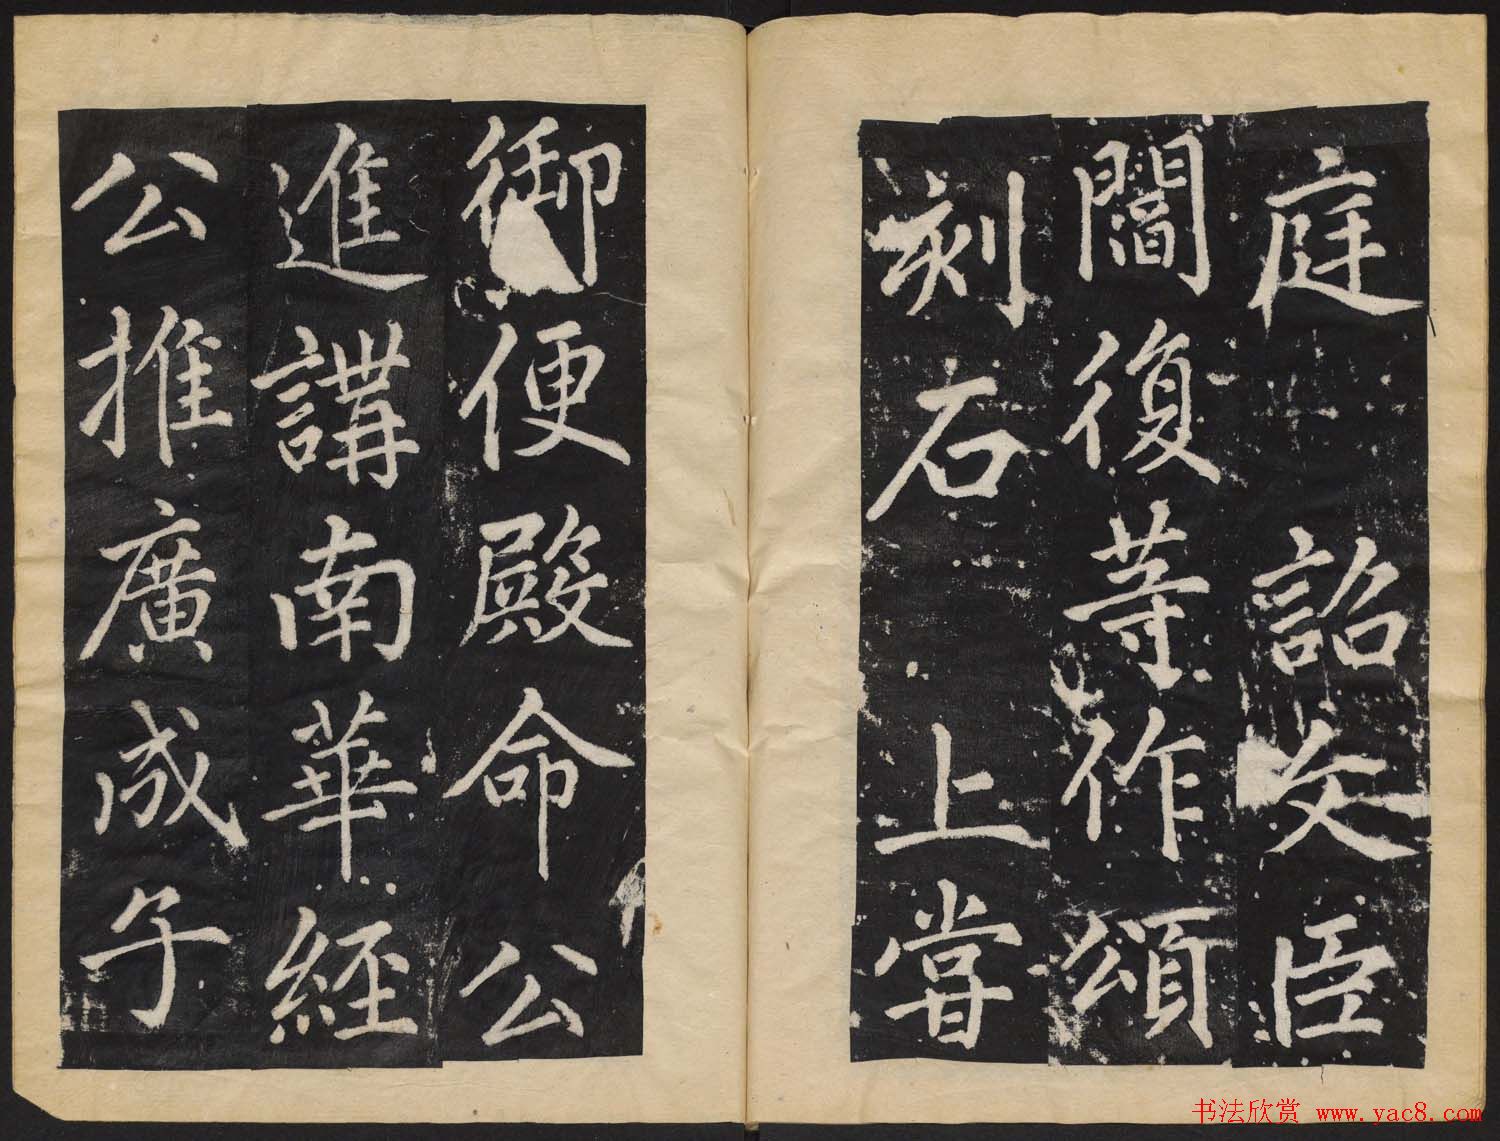 庭詔文臣
閻復等作頌
刻石上嘗
御便殿命公
進講南華經
公推廣成子
书法欣赏 www.yac8.com